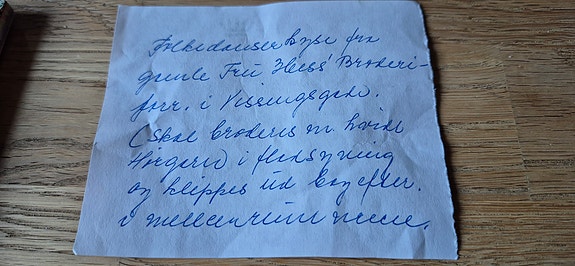 Folkedanserbluse fra
gamle Frü Heess' Broderi-
forr. i Vissingsgade.
(skal broderes m hvidt
Hørgarn i fladsyning
og klippes üd bagefter.
i mellemrümmene.